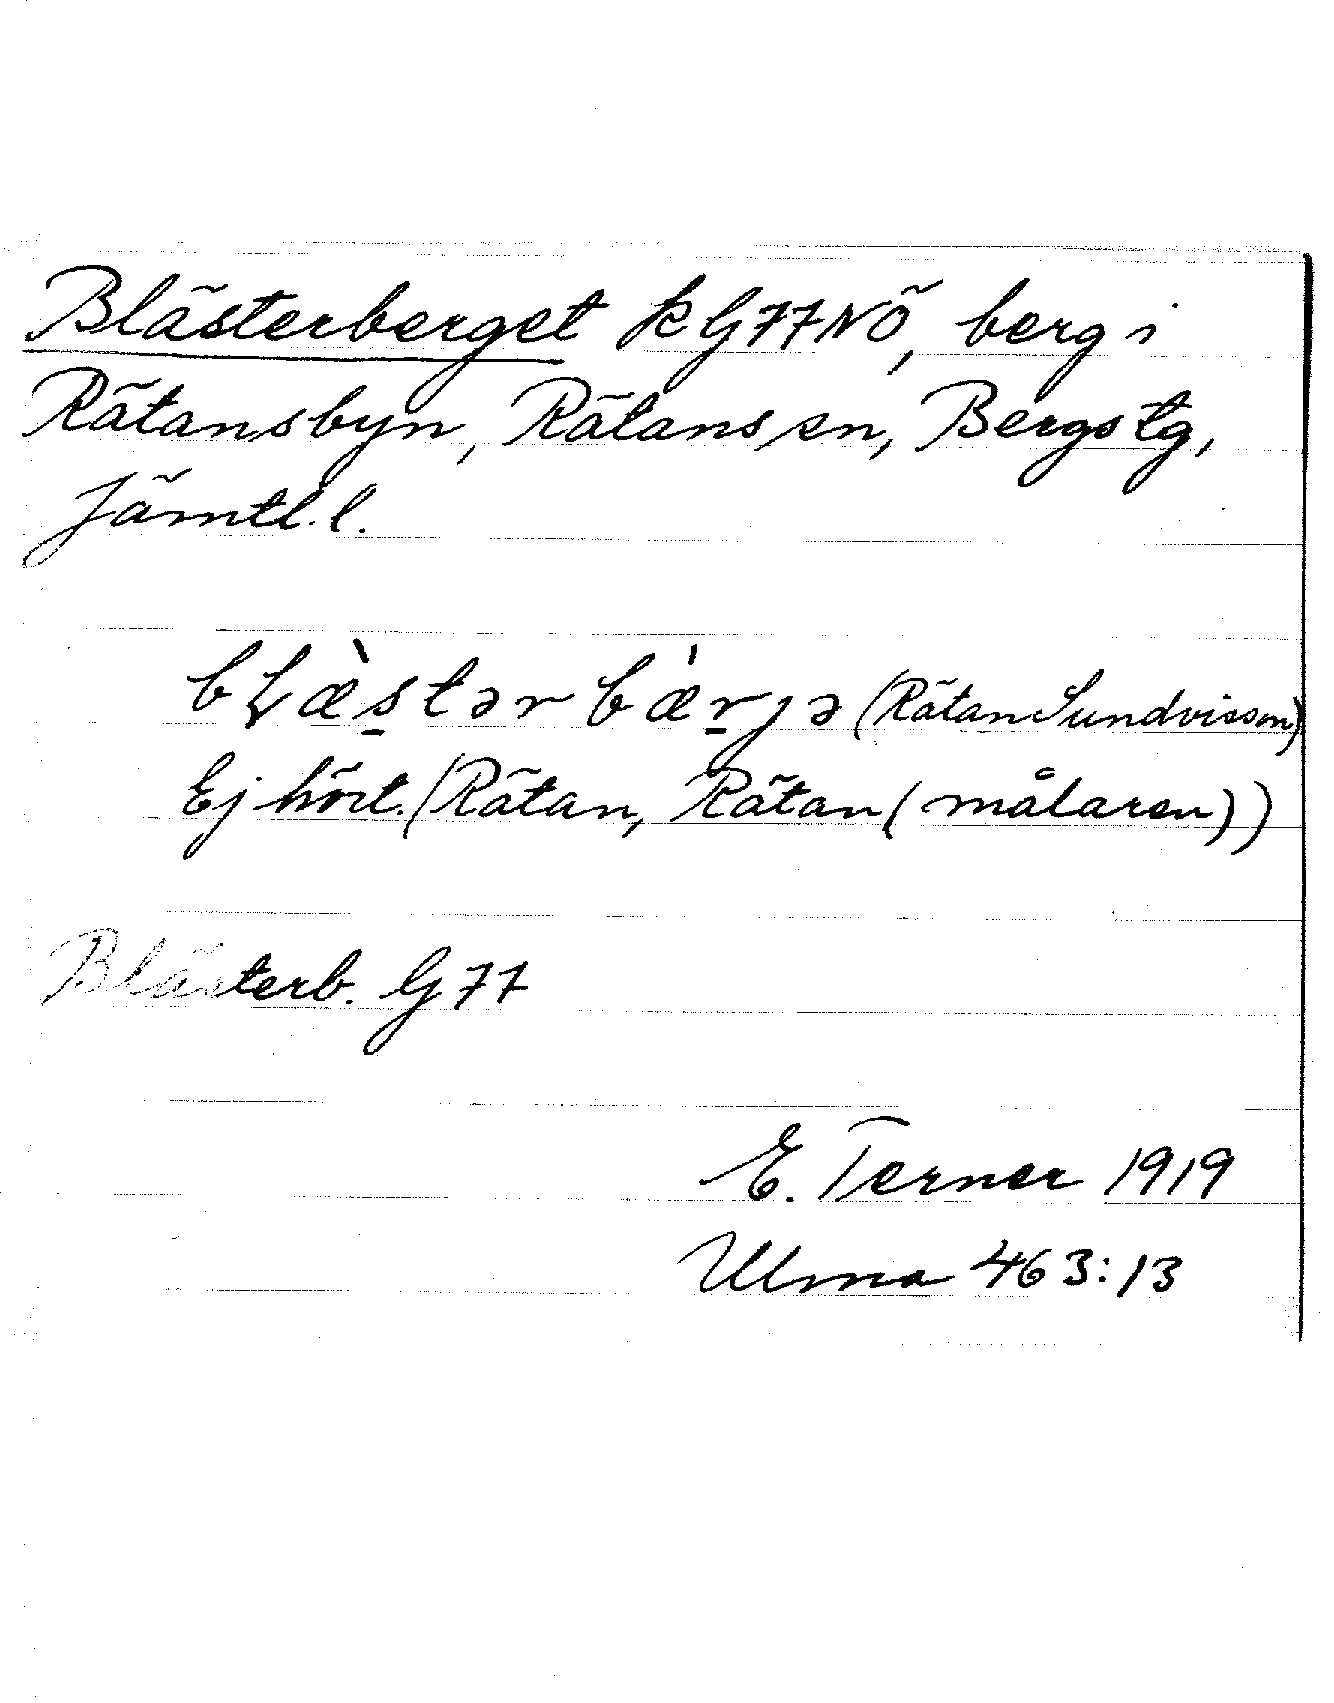 Blästerberget k G77NÖ, berg i
Rätansbyn, Rätans sn, Bergs tg,
Jämtl. l.
bɫæ̀s̠tər bæ̀r̠jə (Rätan Sundvisson)
Ej hört. (Rätan, Rätan (målaren))
Blästerb. G77
E. Terner 1919
Ulma 463:13